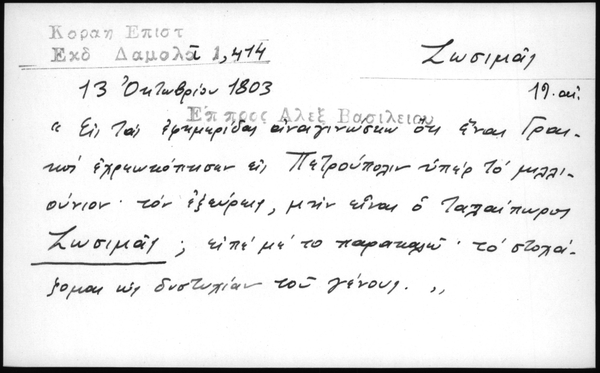 Κοραη Επιστ
Εκδ Δαμαλᾶ 1,414
Ζωσιμᾶς
13 Ὀκτωβρίου 1803
19. αἰ.
Επ προς Αλεξ Βασιλειου
" Εἰς τὰς ἐφημερίδας ἀναγινώσκω ὅτι ἕνας Γραι-
κὸς ἐχρεωκόπησεν εἰς Πετρούπολιν ὑπὲρ τὸ μιλλι-
ούνιον· τὸν ἐξεύρεις, μὴν εἶναι ὁ ταλαίπωρος
Ζωσιμᾶς ; εἰπέ μέ το παρακαλῶ· τὸ στοχά-
ζομαι ὡς δυστυχίαν τοῦ γένους. ,,